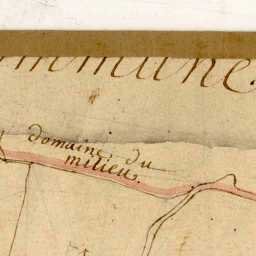 ommune.
domaine du
milieu.